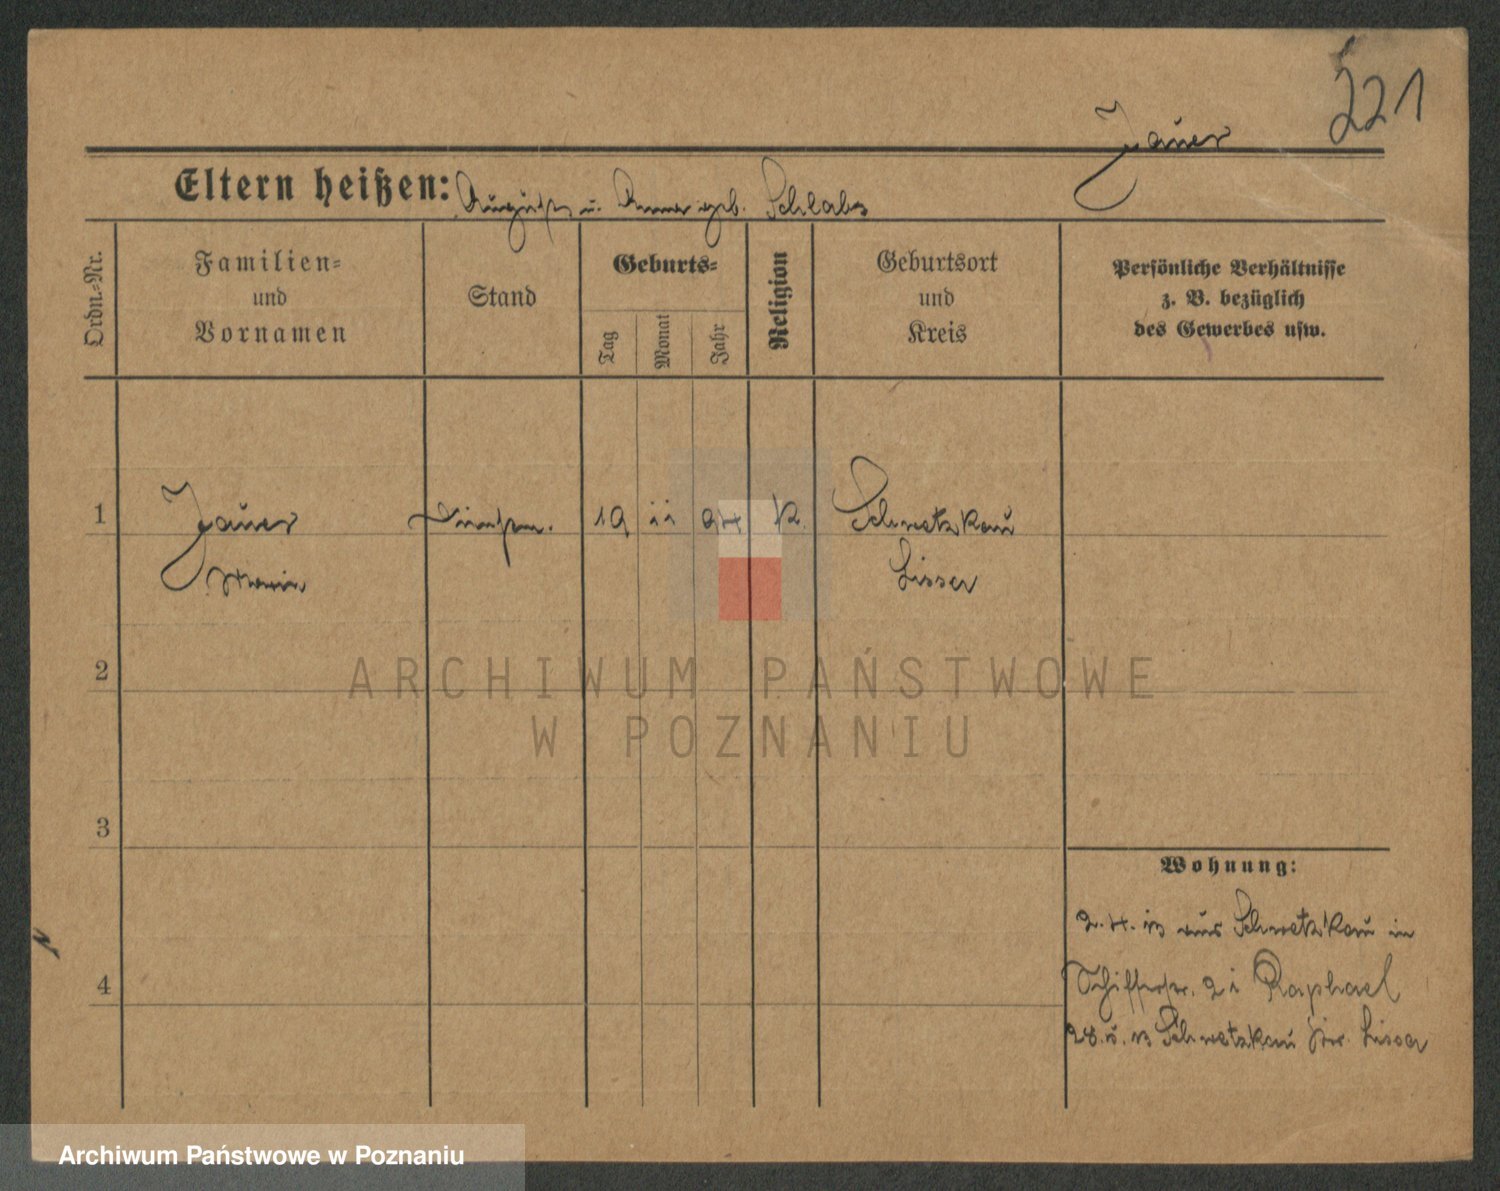 221
Jauer
Eltern heißen: August u. Anna geb. Schlabs
Ordn.-Nr.
Familien-
und
Vornamen
Stand
Geburts-
Tag
Monat
Jahr
Religion
Geburtsort
und
Kreis
Persönliche Verhältnisse
z. B. bezüglich
des Gewerbes usw.
1 Jauer 19 11 94 K. Schwetzkau
Maria Lissa
2
3
4
Wohnung:
2.4.13 aus Schwetzkau in
Schifferstr. 21 Raphael
Schwetzkau Kr. Lissa
ARCHIWUM PAŃSTWOWE
W POZNANIU
Archiwum Państwowe w Poznaniu